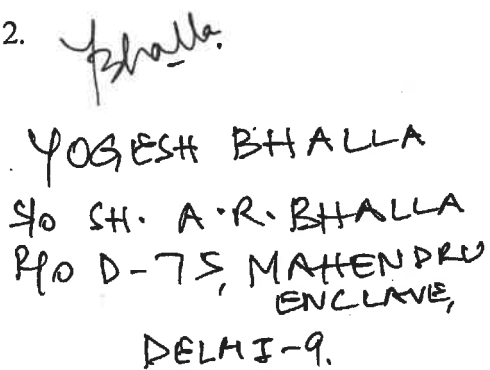 2. YBhalla.
YOGESH BHALLA
S/o SH. A.R. BHALLA
R/o D-75, MAHENDRU
ENCLAVE,
DELHI-9.